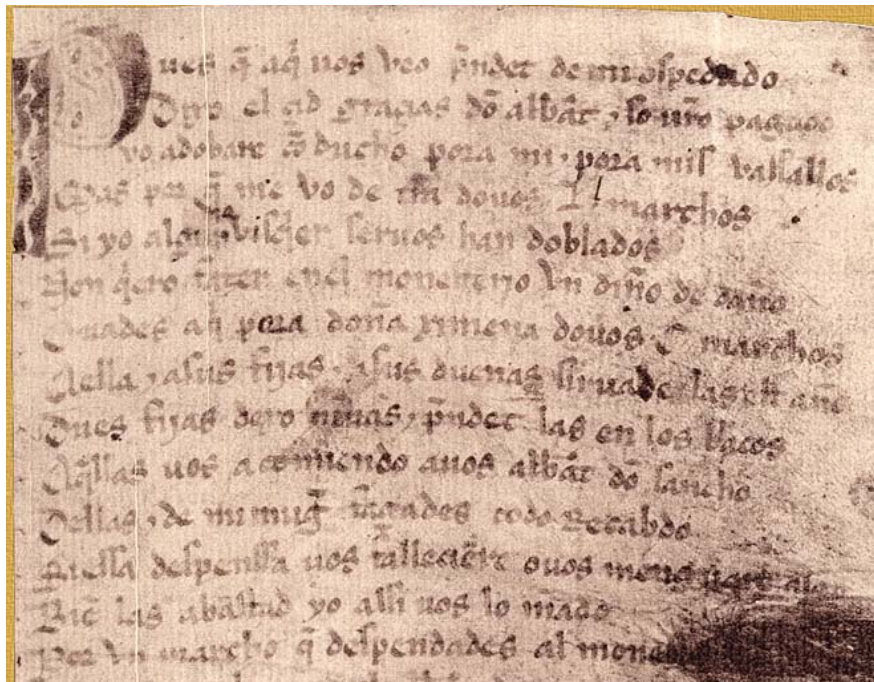 Pues q̃ aq̃ uos veo p̃ndet de mi ospedado
Dixo el çid graçias dõ abbat ⁊ so uro pagado
yo adobare cõ ducho pora mi ⁊ pora mis vassallos
Mas por q̃ me vo de tr̃a douos .L. marchos
Si yo algun visq̃er seruos han doblados
Non q̃ero faz̃er en el monesterio vn diño de daño
Euades aq̃ pora doña ximena douos .C. marchos
Aella ⁊ asus fijas ⁊ asus duenas siruades las est año
Dues fijas dexo niñas ⁊ p̃ndet las en los braços
Aq̃llas uos acomiendo auos abbat dõ sancho
Dellas ⁊ de mi mugĩ fagades todo Recabdo
Si essa despenssa uos falleçiere ouos menguare algo
Biẽ las abastad yo assi uos lo mãdo
Por vn marcho q̃ despendades al monesterio